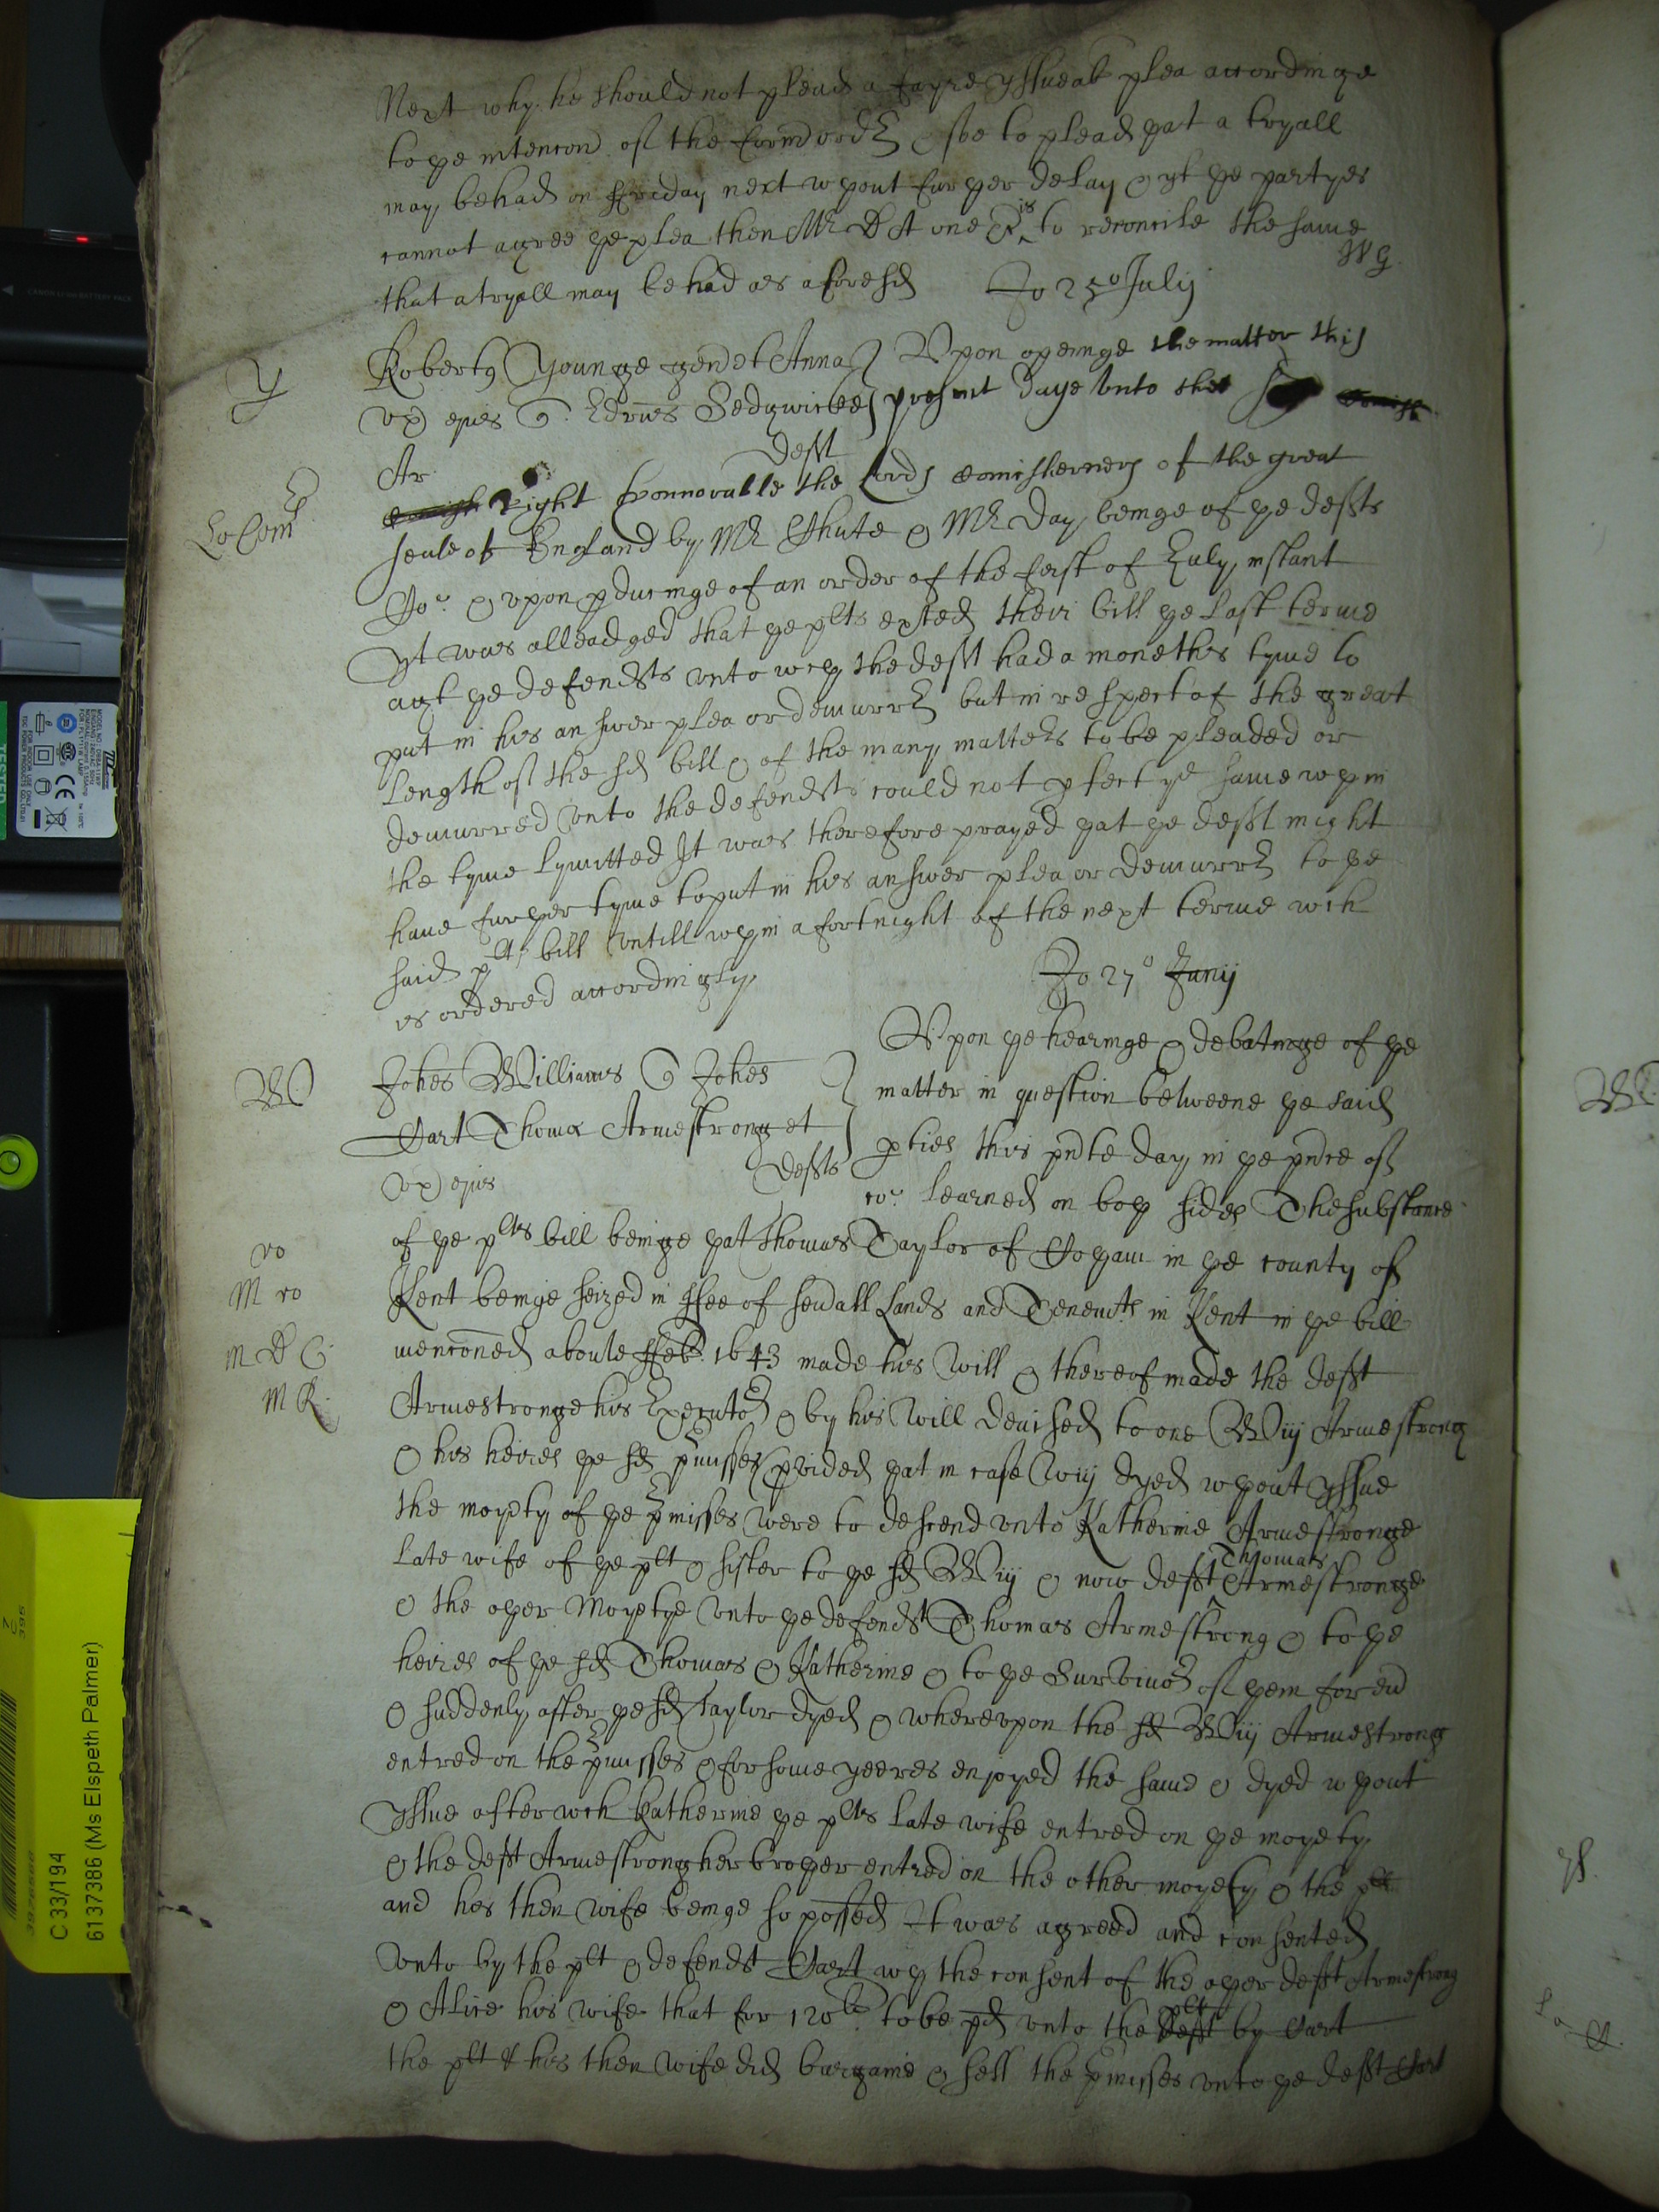 Next why he should not plead a fayre yssueab plea accordinge
to ye intencon of the form ordr & soe to plead yat a tryall
may be had on ffriday next wyout furyer delay & yf ye partyes
cannot agree ye plea then Mr D A one &c is to reconcile the same
that a tryall may be had as aforesd Jo 25o July WG
Y
Robertus Younge gen et Anna
ux ejus C Edrus Sedgwicke
Ar Deft
Upon openinge the matter this
present daye unto the
Lo Comrs
Right Honnorable the Lords Comissioners of the great
seale of England by Mr Shute & Mr Day beinge of ye defts
Co: & upon pducinge of an order of the first of July instant
yt was alleadged that ye plts exhted their bill ye last terme
agt ye defendts unto wch the deft had a moneths tyme to
put in his answer plea or demurrr but in respect of the great
length of the sd bill & of the many matters to be pleaded or
demurred unto the defendts could not pfect ye same wyin
the tyme lymitted It was therefore prayed yat ye deft might
have furyer tyme to put in his answer plea or demurrr to ye
said plts bill untill wyin a fortnight of the next terme wch
is ordered accordingly Jo 27o Junij
W
Johes Williams C Johes
Cart Thoma Armestrong et
ux ejus Defts
Upon ye hearinge & debatinge of ye
matter in question betweene ye said
pties this pnte day in ye pnce of
co: learned on boy sides The substance
ro
M ro
M R
of ye plts bill beinge yat Thomas Taylor of in ye county of
Kent beinge seized in ffee of sevall Lands and Tenemts in Kent in ye bill
menconed aboute ffeb: 1643 made his Will & thereof made the deft
Armestronge his Executor & by his Will devised to one Wm Armestrong
& his heires ye sd pmisses pvided yat in case Wm dyed wyout yssue
the moyety of ye pmisses were to descend unto Katherine Armestronge
late wife of ye plt & sister to ye sd Wm & now deft Thomas Armestronge
& the oyer Moyetye unto ye defendt Thomas Armestrong & to ye
heires of ye sd Thomas & Katherine & to ye Survivor of yem for ev
& suddenly after ye sd Taylor dyed & whereupon the sd Wm Armestrong
entred on the pmisses & for some yeeres enjoyed the same & dyed wyout
yssue after wch Katherine ye plts late wife entred on ye moyety
& the deft Armestrong her broyer entred on the other moyety & the plt
and his then wife beinge so possed It was agreed and consented
unto by the plt & defendt Cart wy the consent of the oyer deft Armestrong
& Alice his wife that for 120l to be pd unto the deft plt by Cart
the plt & his then wife did bargaine & sell the pmisses unto ye deft Cart
C 33/194
6137386 (Ms Elspeth Palmer)
TESTED